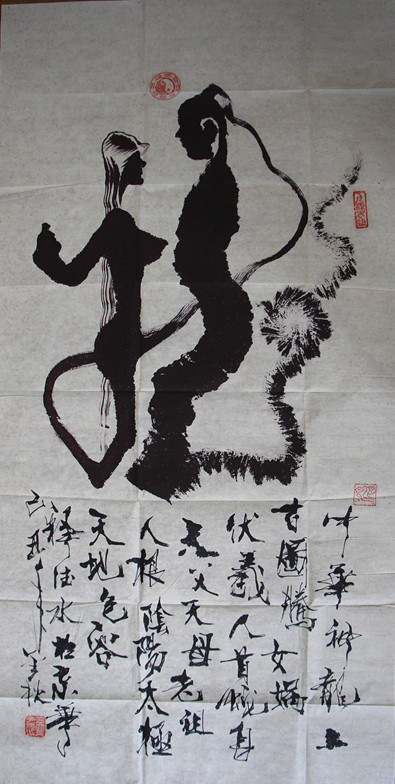 中華神龍上
古圖騰女媧
伏羲人首蛇身
父天母老祖
人根陰陽太極
天地包容
釋水於京華
己丑年秋